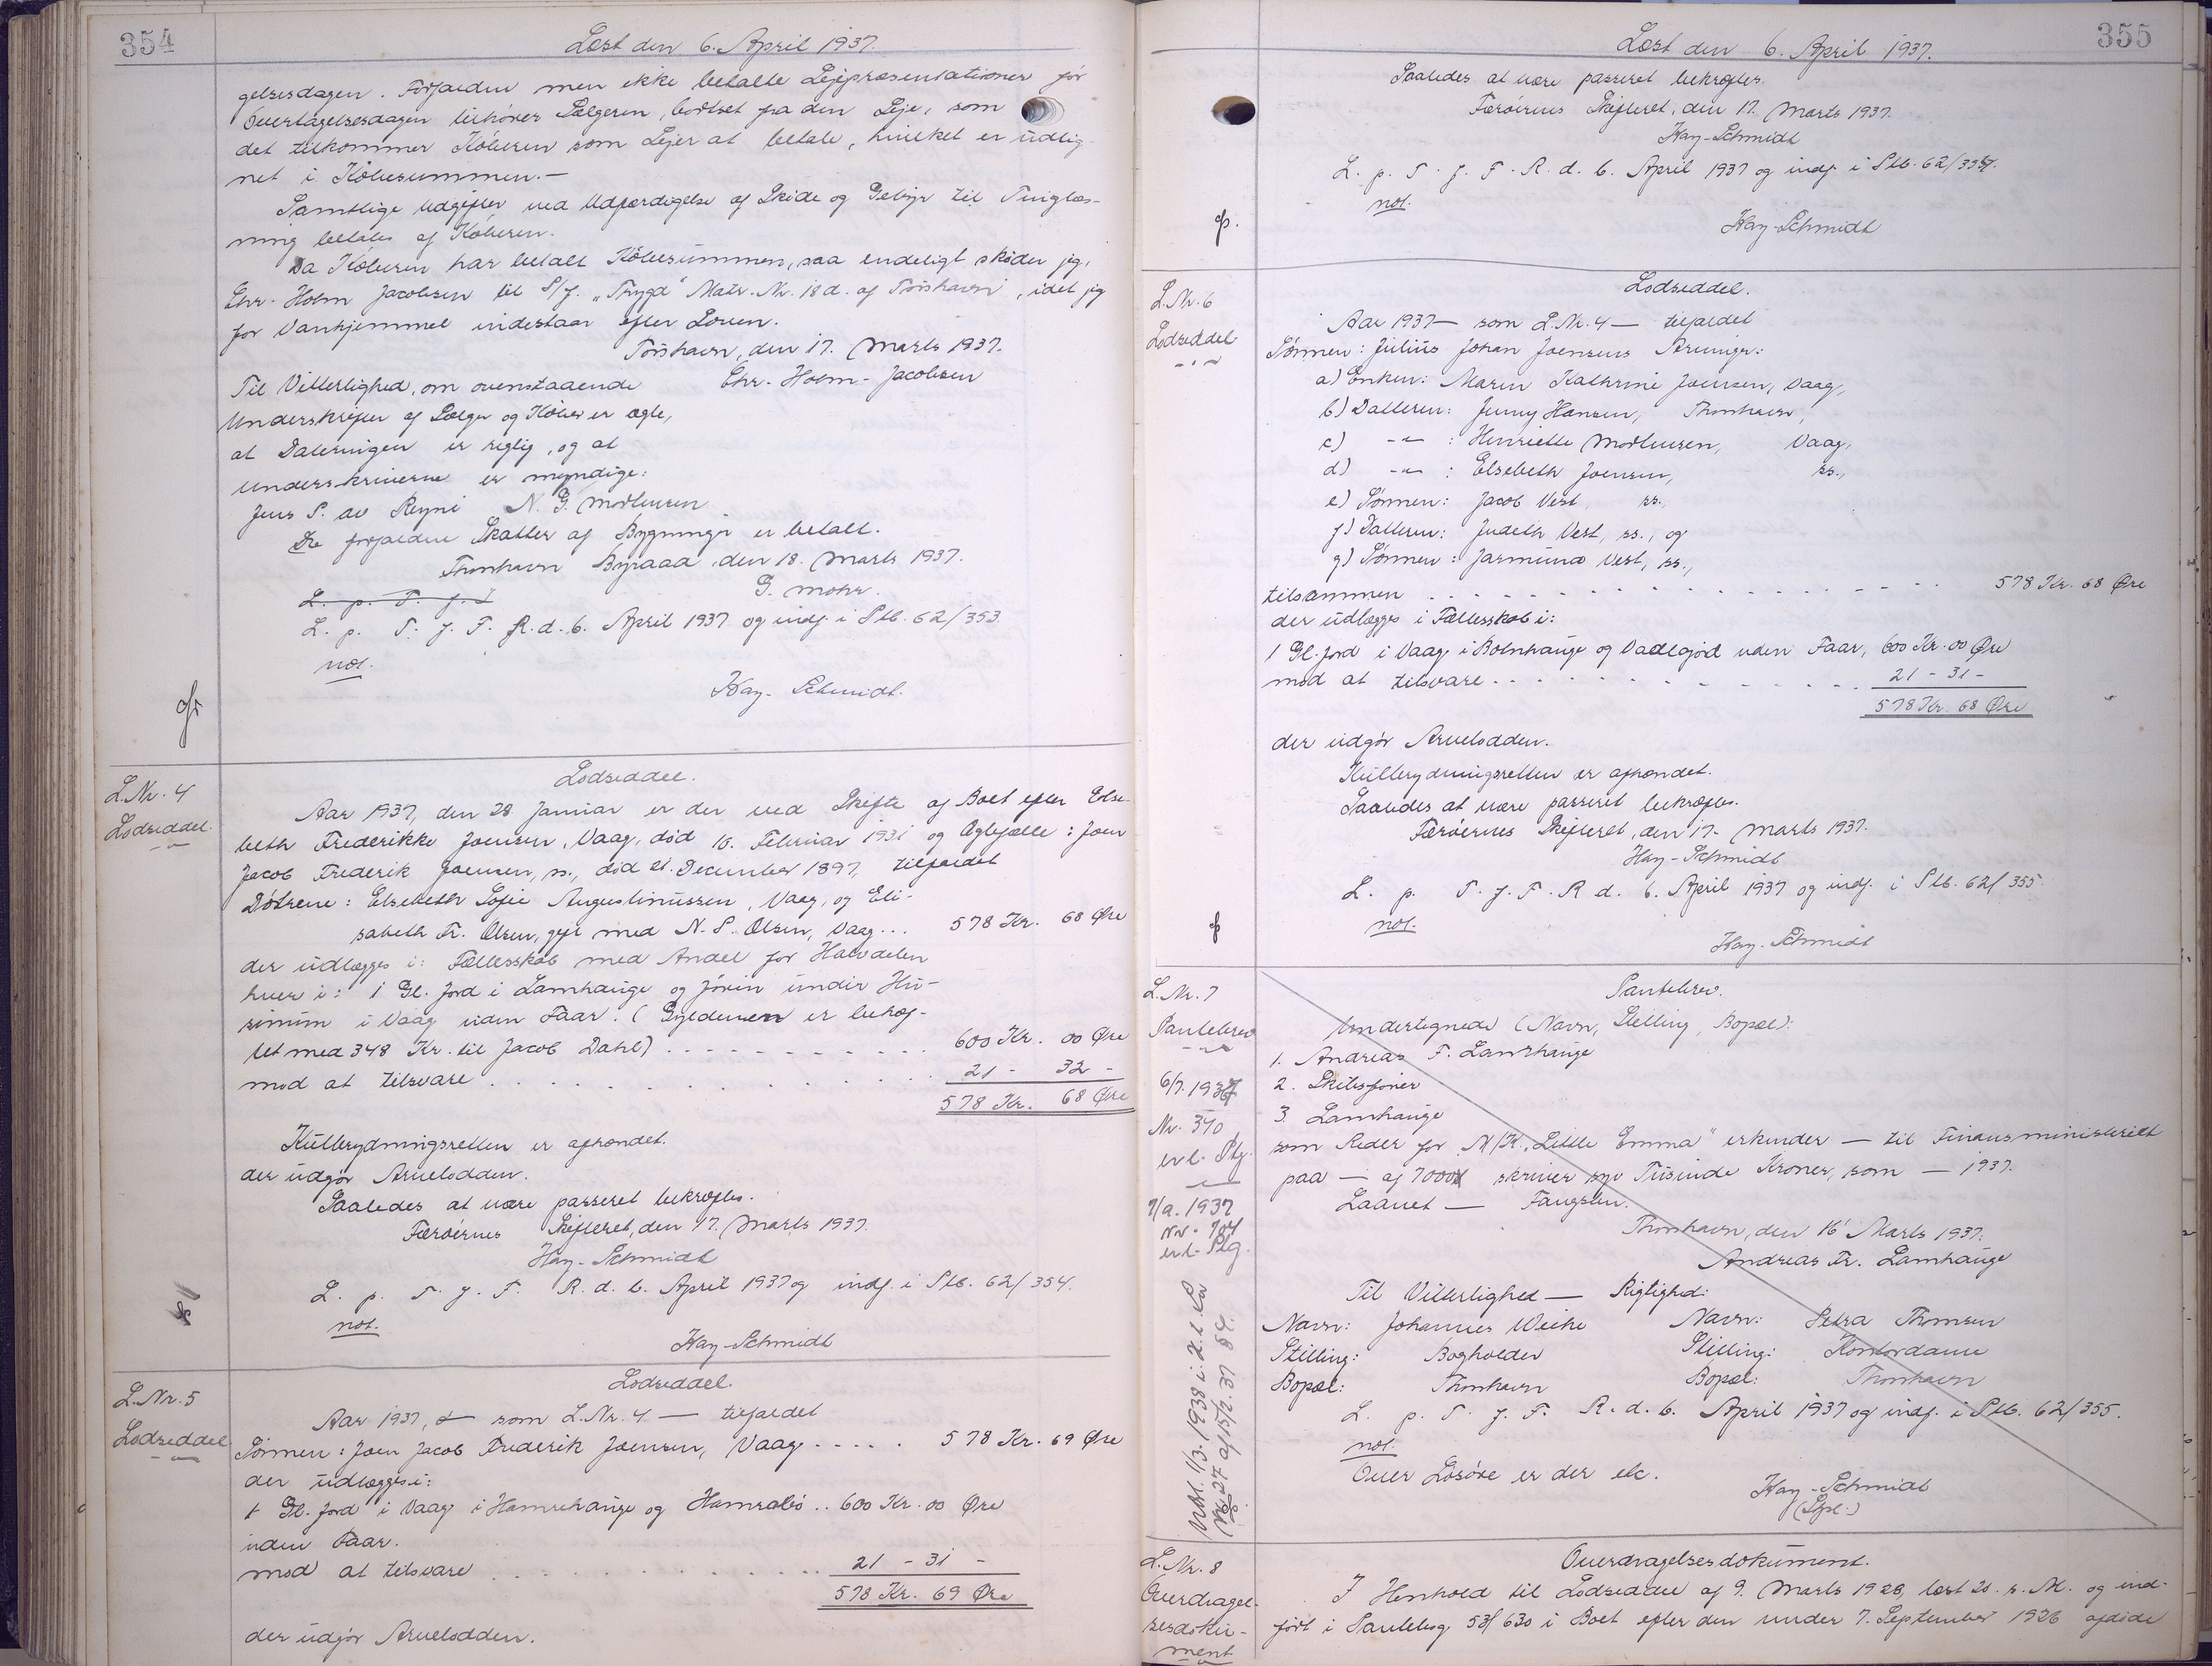 354
Læst den 6. April 1937.
gelsesdagen. Forfaldne men ikke betalte Lejepræsentationer før
Overtagelsesdagen tilhører Sælgeren, bortset fra den Leje, som
det tilkommer Køberen som Lejer at betale, hvilket er udlig-
net i Købesummen.-
Samtlige Udgifter ved Udfærdigelse af Skøde og Gebyr til Tinglæs-
ning betales af Køberen.
Da Køberen har betalt Købesummen, saa endeligt skøder jeg,
Chr. Holm Jacobsen til S/f. "Trygd" Matr. Nr. 18d. af Tórshavn, idet jeg
for Vanhjemmel indestaar efter Loven.
Tórshavn, den 17. Marts 1937.
Til Vitterlighed, om ovenstaaende Chr. Holm-Jacobsen
Underskrifter af Sælger og Køber er ægte,
at Dateringen er rigtig, og at
Underskriverne er myndige:
Jens P. av Reyni N. G. Mortensen
De forfaldne Skatter af Bygninger er betalt.
Thorshavn Byraad, den 18. Marts 1937.
G. Mohr.
L. p. T. f. F
L. p. T. f. F. R. d. 6. April 1937 og indf. i Ptb. 62/353.
not.
Hay-Schmidt.
L.Nr. 4
Lodseddel.
Lodseddel.
Aar 1937, den 28. Januar er der ved Skifte af Boet efter Else-
beth Frederikke Joensen, Vaag, død 16. Februar 1931 og Ægtefælle: Joen
Jacob Frederik Joensen, ss., død 21. December 1897, tilfaldet
Døtrene: Elsebeth Sofie Augustinussen, Vaag, og Eli-
sabeth Fr. Olsen, gift med N. P. Olsen, Vaag... 578 Kr. 68 Øre
der udlægges i: Fællesskab med Andel for Halvdelen
hver i: 1 Gl. Jord i Lamhauge og Jórin undir Hú-
sinum i Vaag uden Faar. (Gyldenen er behæf-
tet med 348 Kr. til Jacob Dahl) . . . 600 Kr. 00 Øre
mod at tilsvare . . . 21 - 32 -
578 Kr. 68 Øre
Kulbrydningsretten er afhændet.
der udgør Arvelodden.
Saaledes at være passeret bekræftes.
Færøernes Skifteret, den 17. Marts 1937.
Hay-Schmidt
L. p. T. f. F. R. d. 6. April 1937 og indf. i Ptb. 62/354.
not.
Hay-Schmidt
L.Nr. 5
Lodseddel
Lodseddel.
Aar 1937, — som L.Nr. 4 — tilfaldet
Sønnen: Joen Jacob Frederik Joensen, Vaag . . . . . 578 Kr. 69 Øre
der udlægges i:
1 Gl. Jord i Vaag i Hamrehauge og Hamrabø .. 600 Kr. 00 Øre
uden Faar.
mod at tilsvare . . . 21 - 31 -
578 Kr. 69 Øre
der udgør Arvelodden.
355
Læst den 6. April 1937.
Saaledes at være passeret bekræftes.
Færøernes Skifteret, den 17. Marts 1937.
Hay-Schmidt
L. p. T. f. F. R. d. 6. April 1937 og indf. i Ptb. 62/354.
not.
Hay-Schmidt
L.Nr. 6
Lodseddel
Lodseddel.
Aar 1937 — som L.Nr. 4 — tilfaldet
Sønnen: Julius Johan Joensens Arvinger:
a) Enken: Maren Kathrine Joensen, Vaag,
b) Datteren: Jenny Hansen, Thorshavn,
c) -"- : Henriette Mortensen, Vaag,
d) -"- : Elsebeth Joensen, ss.,
e) Sønnen: Jacob Vest, ss.,
f) Datteren: Judith Vest, ss., og
g) Sønnen: Jasmund Vest, ss.,
tilsammen . . . 578 Kr. 68 Øre
der udlægges i Fællesskab i:
1 Gl. Jord i Vaag i Bolnhauge og Vadlagjød uden Faar, 600 Kr. 00 Øre
mod at tilsvare . . . 21 - 31 -
578 Kr. 68 Øre
der udgør Arvelodden.
Kulbrydningsretten er afhændet.
Saaledes at være passeret bekræftes.
Færøernes Skifteret, den 17. Marts 1937.
Hay-Schmidt
L. p. T. f. F. R. d. 6. April 1937 og indf. i Ptb. 62/355.
not.
Hay-Schmidt
L.Nr. 7
Pantebrev
6/7. 1937
Nr. 340
7/9. 1937
Nr. 704
Pantebrev.
Undertegnede (Navn, Stilling, Bopæl):
1. Andreas F. Lamhauge
2. Skibsfører
3. Lamhauge
som Reder for M/K. "Little Emma" erkender — til Finansministeriet
paa — af 7000 skriver syv Tusinde Kroner, som — 1937.
Laanet — Fangsten.
Thorshavn, den 16 Marts 1937.
Andreas Fr. Lamhauge
Til Vitterlighed — Rigtighed:
Navn: Johannes Weihe Navn: Petra Thomsen
Stilling: Bogholder Stilling: Kontordame
Bopæl: Thorshavn Bopæl: Thorshavn
L. p. T. f. F. R. d. 6. April 1937 og indf. i Ptb. 62/355.
not.
Over Løsøre er der etc.
Hay-Schmidt
L.Nr. 8
Overdragel-
sesdoku-
ment
Overdragelsesdokument.
I Henhold til Lodseddel af 9. Marts 1928, læst 20. s. M. og ind-
ført i Pantebog 53/630 i Boet efter den under 7. September 1926 afdøde